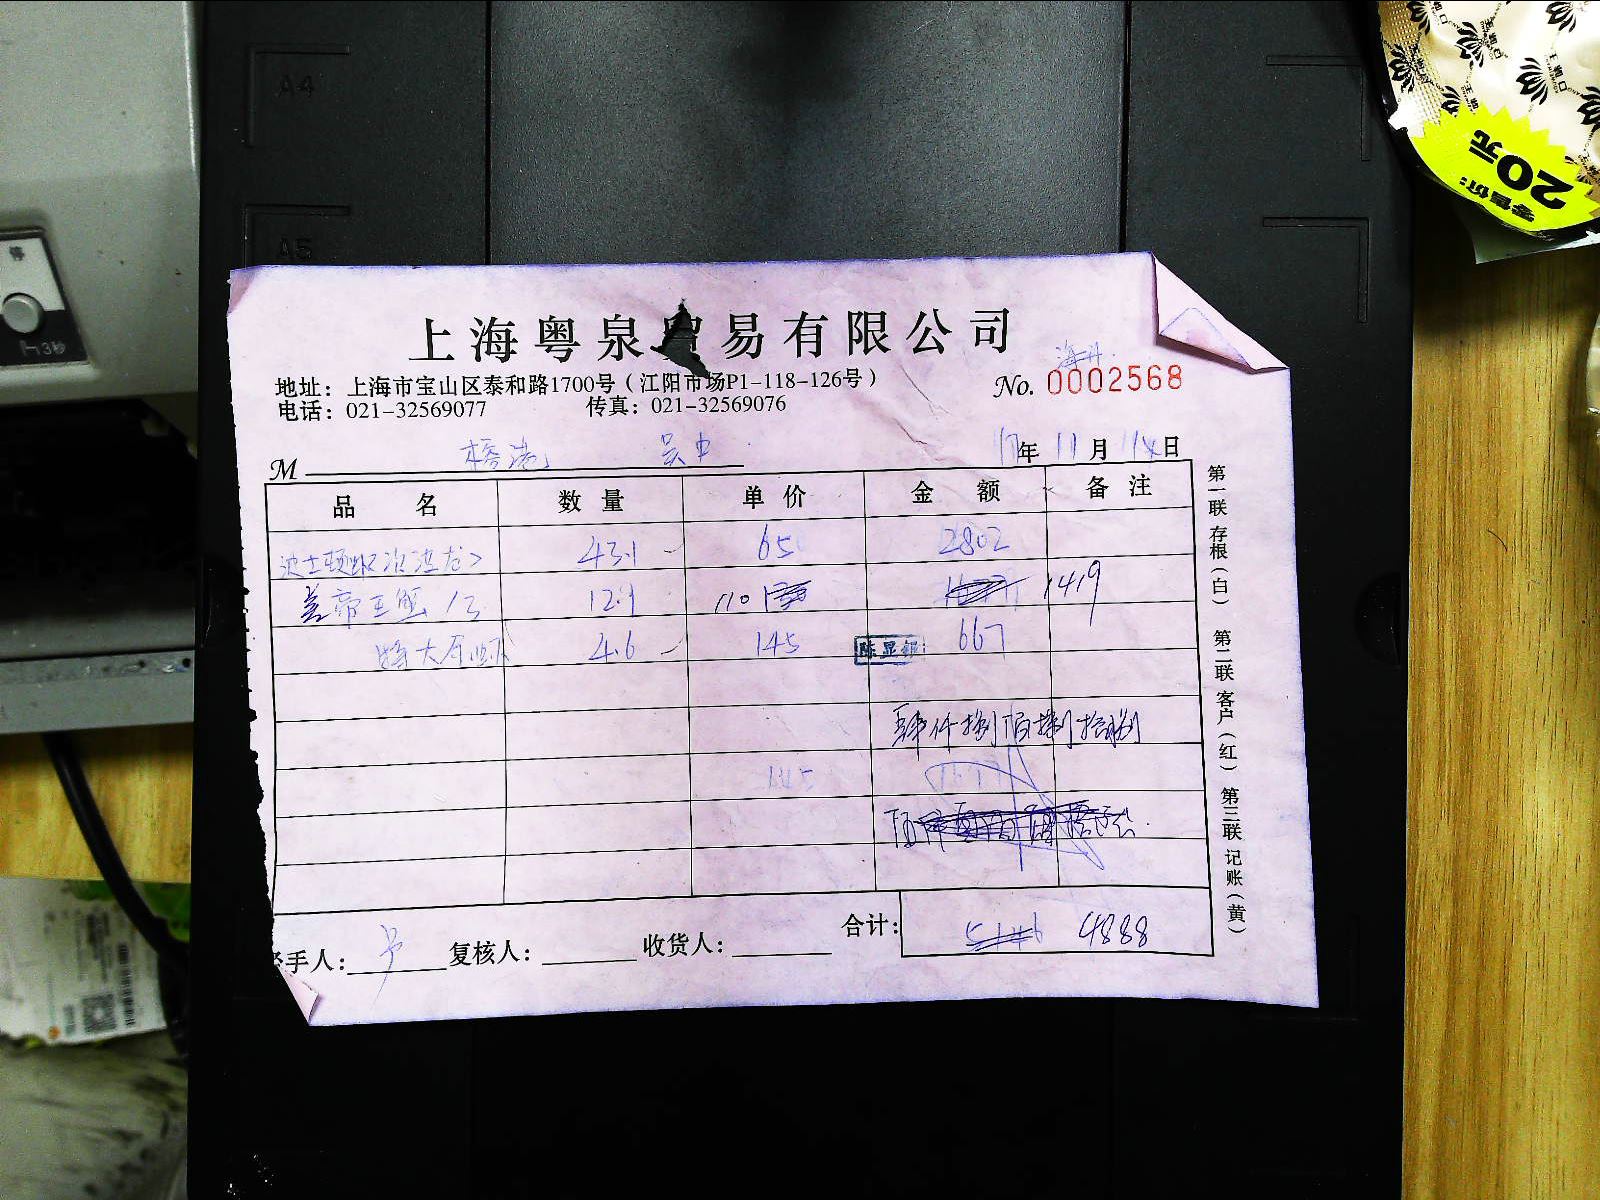 A4
A5
零售价:
20元
停
3秒
上海粤泉贸易有限公司
地址：上海市宝山区泰和路1700号（江阳市场P1-118-126号）
No. 0002568
电话：021-32569077 传真：021-32569076
M 吴中 17年 11月 14日
品名 数量 单价 金额 备注
43.1 65 2802
帝王蟹 12.9 110 1419
特大 4.6 145 667
陈显
肆仟捌佰捌拾捌
145
合计: 5146 4888
手人: 复核人: 收货人:
第一联 存根（白） 第二联 客户（红） 第三联 记账（黄）